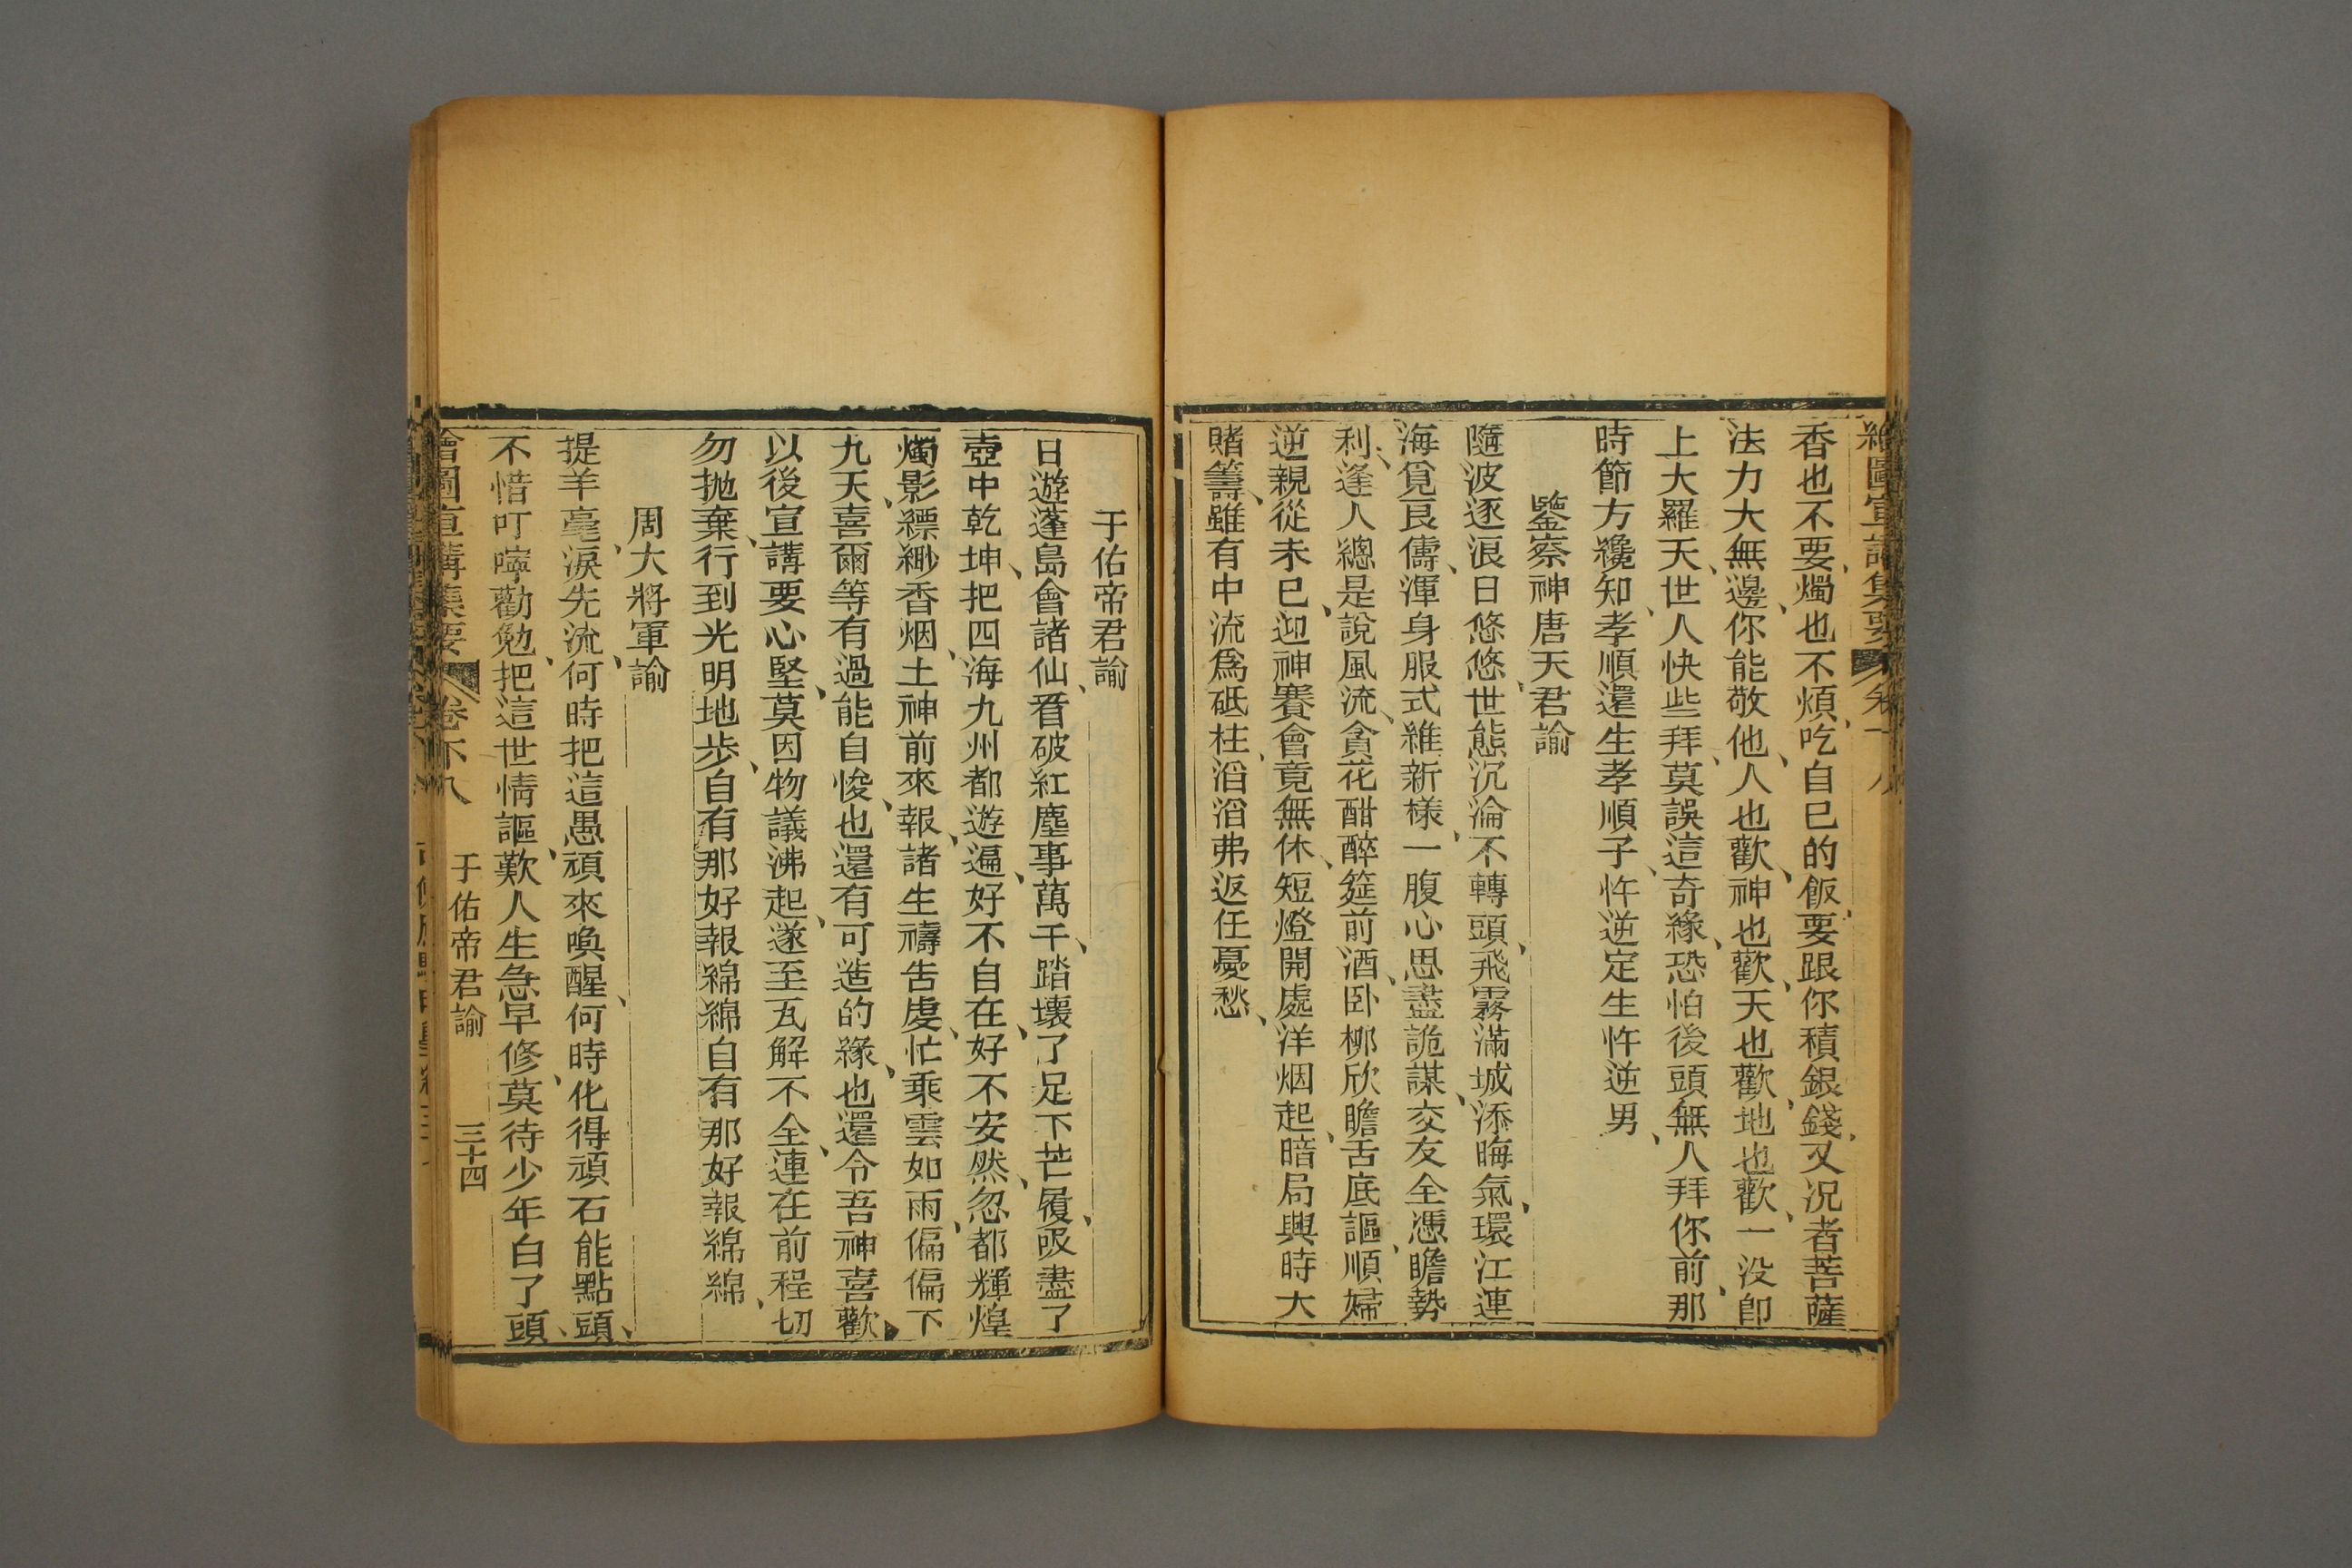 香也不要、燭也不煩、吃自巳的飯、要跟你積銀錢、又況者菩薩
法力大無邊、你能敬他、人也歡、神也歡、天也歡、地也歡、一没卽
上大羅天、世人快些拜、莫誤這奇緣、恐怕後頭無人拜你前、那
時節方纔知、孝順還生孝順子、忤逆定生忤逆男、
鑒察神唐天君諭
隨波逐浪日悠悠、世態沉淪、不轉頭、飛霧滿城添晦氣、環江連
海覓良儔、渾身服式維新樣、一腹心思盡詭謀、交友全憑瞻勢
利、逢人總是說風流、貪花酣醉筵前酒、卧柳欣瞻舌底謳、順婦
逆親從未巳、迎神賽會竟無休、短燈開處洋烟起、暗局興時大
賭籌、雖有中流爲砥柱、滔滔弗返任憂愁、
于佑帝君諭
日遊蓬島會諸仙、看破紅塵事萬千、踏壞了足下芒履、吸盡了
壺中乾坤、把四海九州都遊遍、好不自在、好不安然、忽都輝煌
燭影縹緲香烟、土神前來報、諸生禱吿虔、忙乘雲如雨、偏偏下
九天、喜爾等有過能自悛、也還有可造的緣、也還令吾神喜歡、
以後宣講要心堅、莫因物議沸起、遂至瓦解不全、連在前程、切
勿拋棄、行到光明地步、自有那好報綿綿自有那好報綿綿、
周大將軍諭
提羊毫、淚先流、何時把這愚頑來喚醒、何時化得頑石能點頭、
不惜叮嚀勸勉、把這世情謳、歎人生急早修、莫待少年白了頭、
繪圖宣講集要 卷下八 于佑帝君諭 三十四